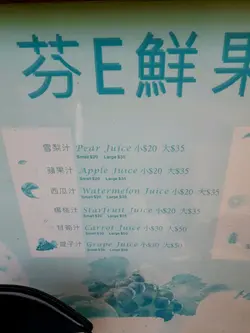 芬E鮮果
雪梨汁 Pear Juice 小$20 大$35
Small $20 Large $35
蘋果汁 Apple Juice 小$20 大$35
Small $20 Large $35
西瓜汁 Watermelon Juice 小$20 大$35
Small $20 Large $35
楊桃汁 Starfruit Juice 小$20 大$35
Small $20 Large $35
甘筍汁 Carrot Juice 小$30 大$50
提子汁 Grape Juice 小$30 大$50